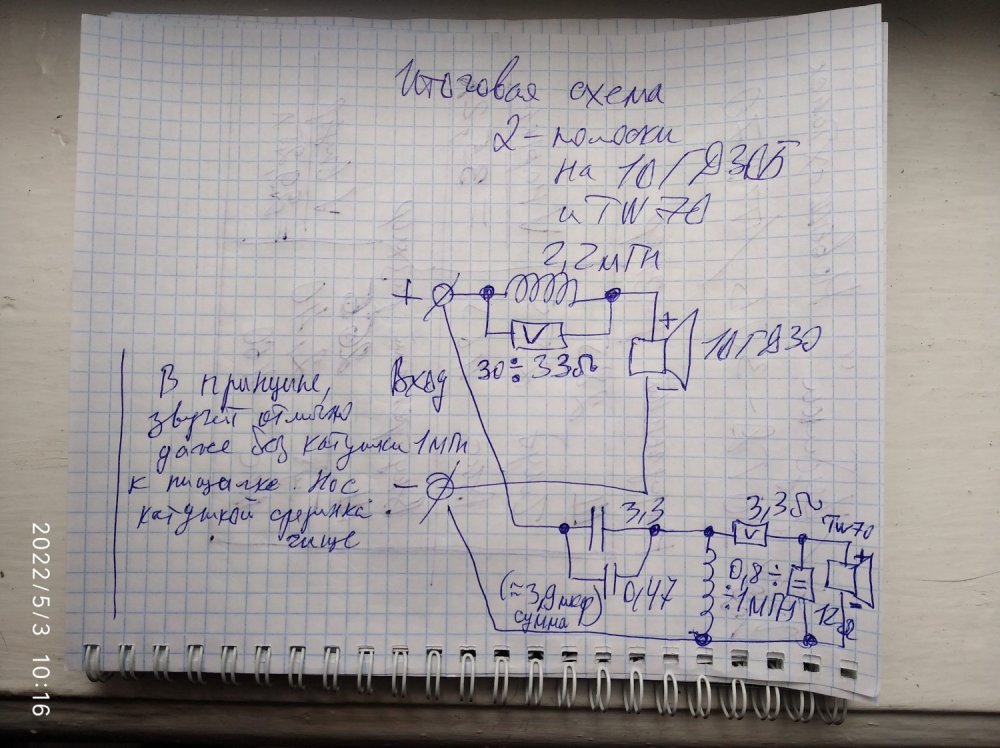 Итоговая схема
2-полоски
на 10ГД30Б
и TW 70
2,2мГн
+
V
+
30÷33Ω
10ГД30
-
Вход
В принципе,
звучит отлично
даже без катушки 1мГн
к пищалке. Но с
катушкой серединка
чище
-
3,3
0,47
(≈3,9мкф)
сумма
3,3Ω
V
TW70
+
0,8÷
÷1мГн
=
-
12Ω
2022/5/3 10:16